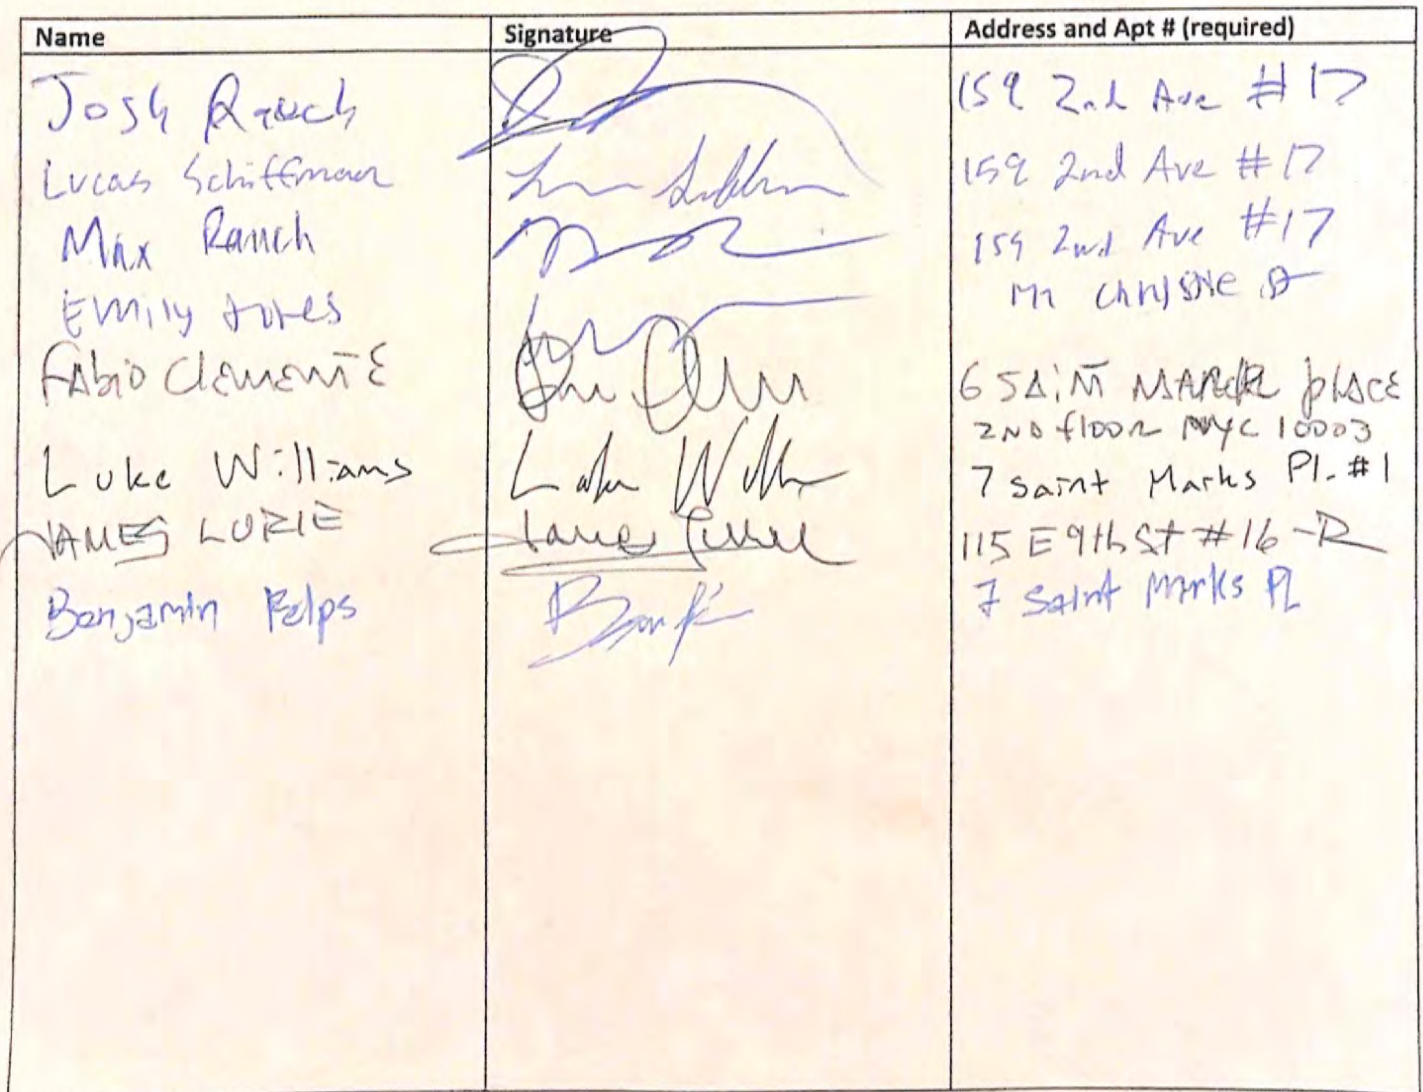 Name Signature Address and Apt # (required)
Josh Rauch 159 2nd Ave #17
Lucas Schiffman 159 2nd Ave #17
Max Rauch 159 2nd Ave #17
Emily
Fabio Clemente 6 SAiNT MARK place
2ND flOOR NYC 10003
Luke Williams Luke Will 7 Saint Marks Pl. #1
JAMES LURIE James Lurie 115 E 9th St #16-R
Benjamin Pelps 7 Saint Marks PL